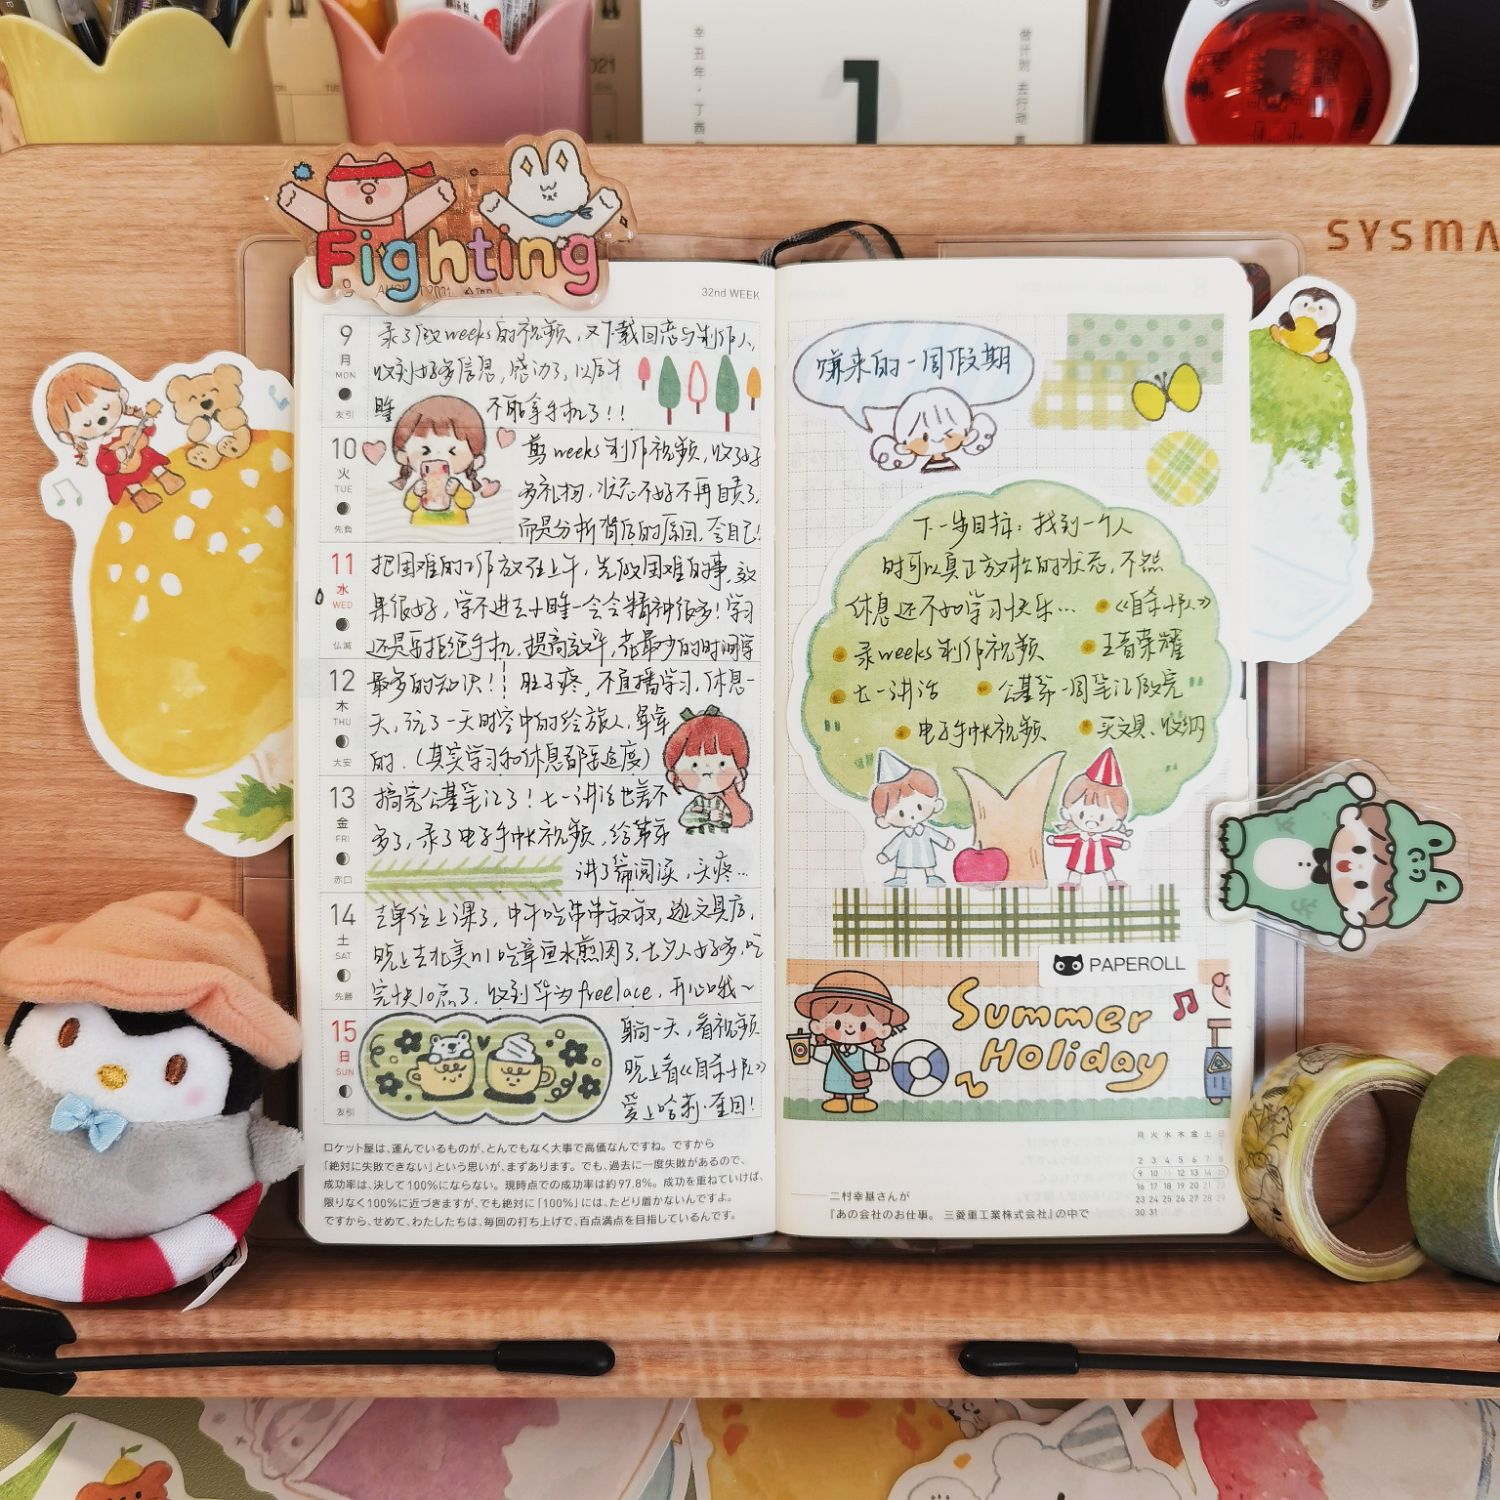 辛丑年·丁酉
1
做计划 去行动
2021
SYSMA
Fighting
32nd WEEK
9
月
MON
友引
录了做weeks的视频，又下载回忘与制作人，
收到好多信息，感动了，以后午
睡 不能拿手机了！！
10
火
TUE
先負
剪weeks制作视频，收了好
多礼物，状态不好不再自责了，
而是分析背后的原因，夸自己！
11
水
WED
仏滅
把困难的工作放在上午，先做困难的事，效
果很好，学不进去小睡一会会精神很多！学习
还是要拒绝手机，提高效率，花最少的时间学
12
木
THU
大安
最多的知识！！肚子疼，不直播学习，休息一
天，玩了一天时空中的绘旅人，肝
的．（其实学习和休息都要适度）
13
金
FRI
赤口
搞完公基笔记了！七一讲话也差不
多了，录了电子手帐视频，给弟弟
讲了篇阅读，头疼…
14
土
SAT
先勝
去单位上课了，中午吃串串叔叔，逛文具店，
晚上去北美N1吃章鱼水煎肉了，七夕人好多，吃
完快10点了，收到华为freelace，开心哦～
15
日
SUN
友引
躺一天，看视频
晚上看《自杀小队》
爱上哈莉·奎因！
ロケット屋は、運んでいるものが、とんでもなく大事で高価なんですね。ですから
「絶対に失敗できない」という思いが、まずあります。でも、過去に一度失敗があるので、
成功率は、決して100％にならない。現時点での成功率は約97.8％。成功を重ねていけば、
限りなく100％に近づきますが、でも絶対に「100％」には、たどり着かないんですよ。
ですから、せめて、わたしたちは、毎回の打ち上げで、百点満点を目指しているんです。
赚来的一周假期
下一步目标：找到一个人
时可以真正放松的状态，不然
休息还不如学习快乐… 《自杀小队》
录weeks制作视频 王者荣耀
七一讲话 公基第一周笔记做完
电子手帐视频 买文具、收纳
PAPEROLL
Summer
Holiday
月 火 水 木 金 土 日
2 3 4 5 6 7 8
9 10 11 12 13 14 15
16 17 18 19 20 21 22
23 24 25 26 27 28 29
30 31
二村幸基さんが
『あの会社のお仕事。 三菱重工業株式会社』の中で